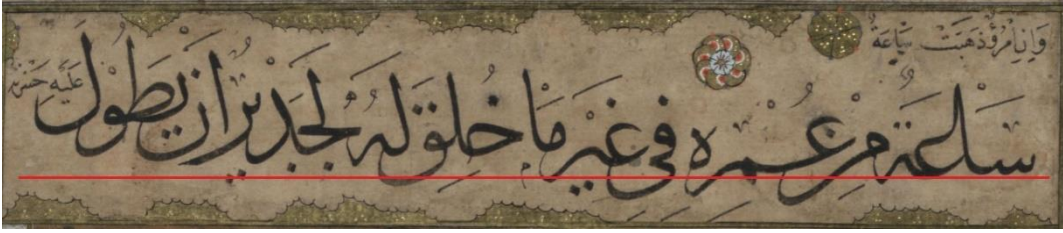 وَاِنِ امْرُؤٌ ذَهَبَتْ سَاعَةٌ
سَاعَةٌ مِنْ عُمْرِهِ فِي غَيْرِ مَا خُلِقَ لَهُ لَجَدِيرٌ اَنْ يَطُولَ
عَلَيْهِ